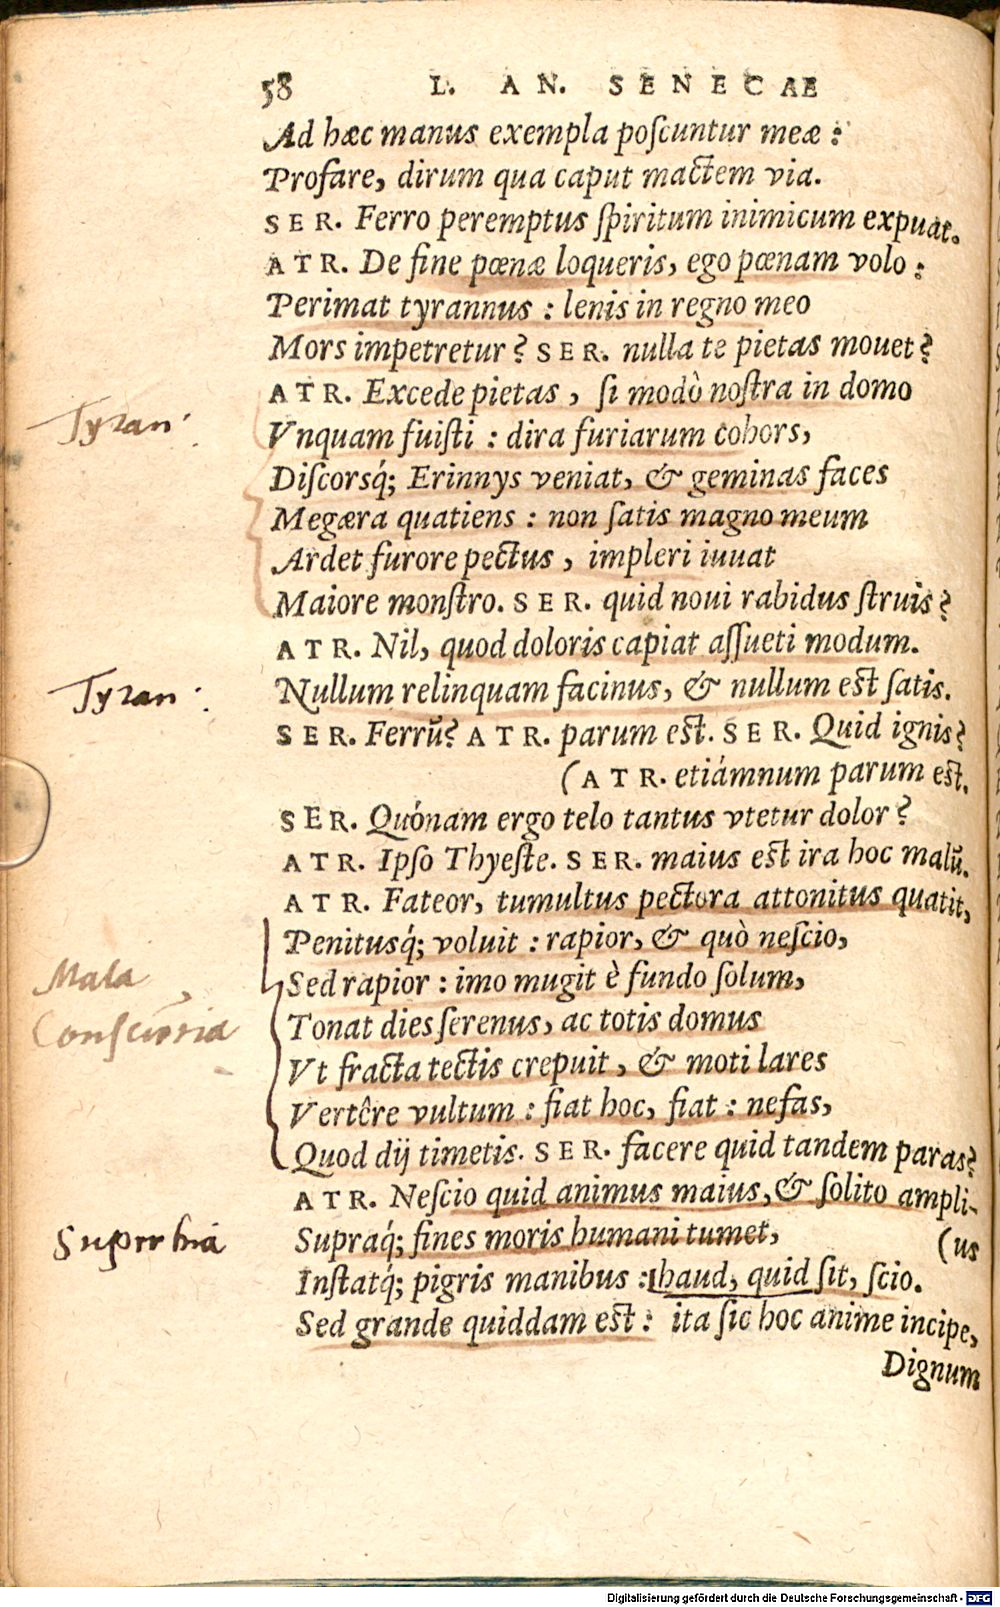 58 L. AN. SENECAE
Ad hæc manus exempla poſcuntur meæ :
Profare, dirum qua caput mactem via.
SER. Ferro peremptus ſpiritum inimicum expuat.
ATR. De fine pœnæ loqueris, ego pœnam volo :
Perimat tyrannus : lenis in regno meo
Mors impetretur? SER. nulla te pietas mouet?
ATR. Excede pietas, ſi modò noſtra in domo
Tyran:
Vnquam fuiſti : dira furiarum cohors,
Diſcorsq́; Erinnys veniat, & geminas faces
Megæra quatiens : non ſatis magno meum
Ardet furore pectus, impleri iuuat
Maiore monſtro. SER. quid noui rabidus ſtruis?
ATR. Nil, quod doloris capiat aſſueti modum.
Tyran:
Nullum relinquam facinus, & nullum est ſatis.
SER. Ferrū? ATR. parum est. SER. Quid ignis?
(ATR. etiámnum parum est.
SER. Quónam ergo telo tantus vtetur dolor?
ATR. Ipſo Thyeſte. SER. maius est ira hoc malū.
ATR. Fateor, tumultus pectora attonitus quatit,
Penitusq́; voluit : rapior, & quò neſcio,
Mala
Sed rapior : imo mugit è fundo ſolum,
Tonat dies ſerenus, ac totis domus
Vt fracta tectis crepuit, & moti lares
Vertêre vultum : fiat hoc, fiat : nefas,
Quod dij timetis. SER. facere quid tandem paras?
ATR. Neſcio quid animus maius, & ſolito ampli-
Superbia
Supraq́; fines moris humani tumet, (us
Inſtatq́; pigris manibus : haud, quid ſit, ſcio.
Sed grande quiddam est : ita ſic hoc anime incipe,
Dignum
Digitalisierung gefördert durch die Deutsche Forschungsgemeinschaft - DFG